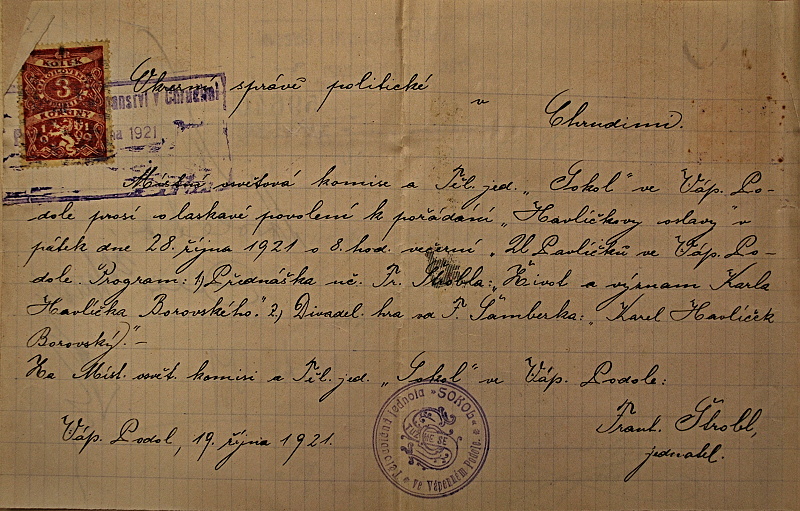 KOLEK
3
KORUNY
1921
Okresní správě politické
v
Chrudimi.
Místní osvětová komise a Těl. jed. „Sokol" ve Váp. Po-
dole prosí o laskavé povolení k pořádání „Havlíčkovy oslavy" v
pátek dne 28. října 1921 o 8. hod. večerní u Pavlíčků ve Váp. Po-
dole. Program: 1.) Přednáška uč. Fr. Štrobla: „Život a význam Karla
Havlíčka Borovského." 2.) Divadel. hra od F. Šamberka: „Karel Havlíček
Borovský." –
Za Míst. osvět. komisi a Těl. jed. „Sokol" ve Váp. Podole:
Frant. Štrobl,
jednatel.
Váp. Podol, 19. října 1921.
Tělocvičná jednota »SOKOL«
ve Vápenném Podole.
TUŽME SE